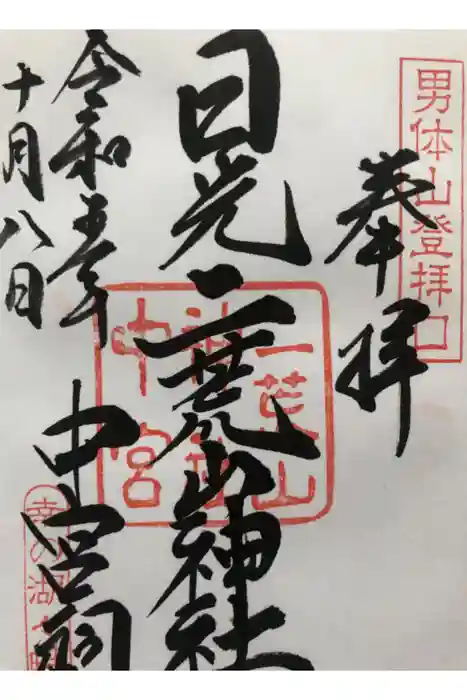 男体山登拝口
奉拝
日光二荒山神社
中宮祠
令和五年
十月八日
二荒山
神社
中宮
幸の湖